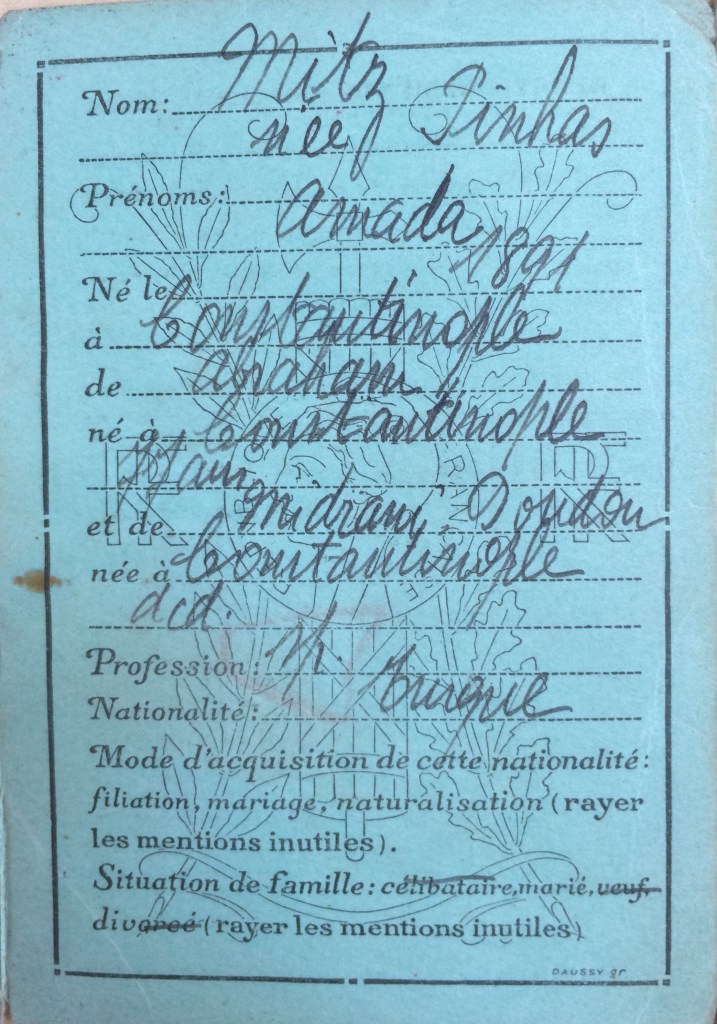 Nom: Mitz
née Pinhas
Prénoms: Amada
Né le 1891
à Constantinople
de Abraham
né à Constantinople
RF RF
et de Midrani, Doudou
née à Constantinople
dcd.
Profession:
Nationalité: turque
Mode d'acquisition de cette nationalité:
filiation, mariage, naturalisation (rayer
les mentions inutiles).
Situation de famille: célibataire, marié, veuf,
divorcé (rayer les mentions inutiles)
DAUSSY gr